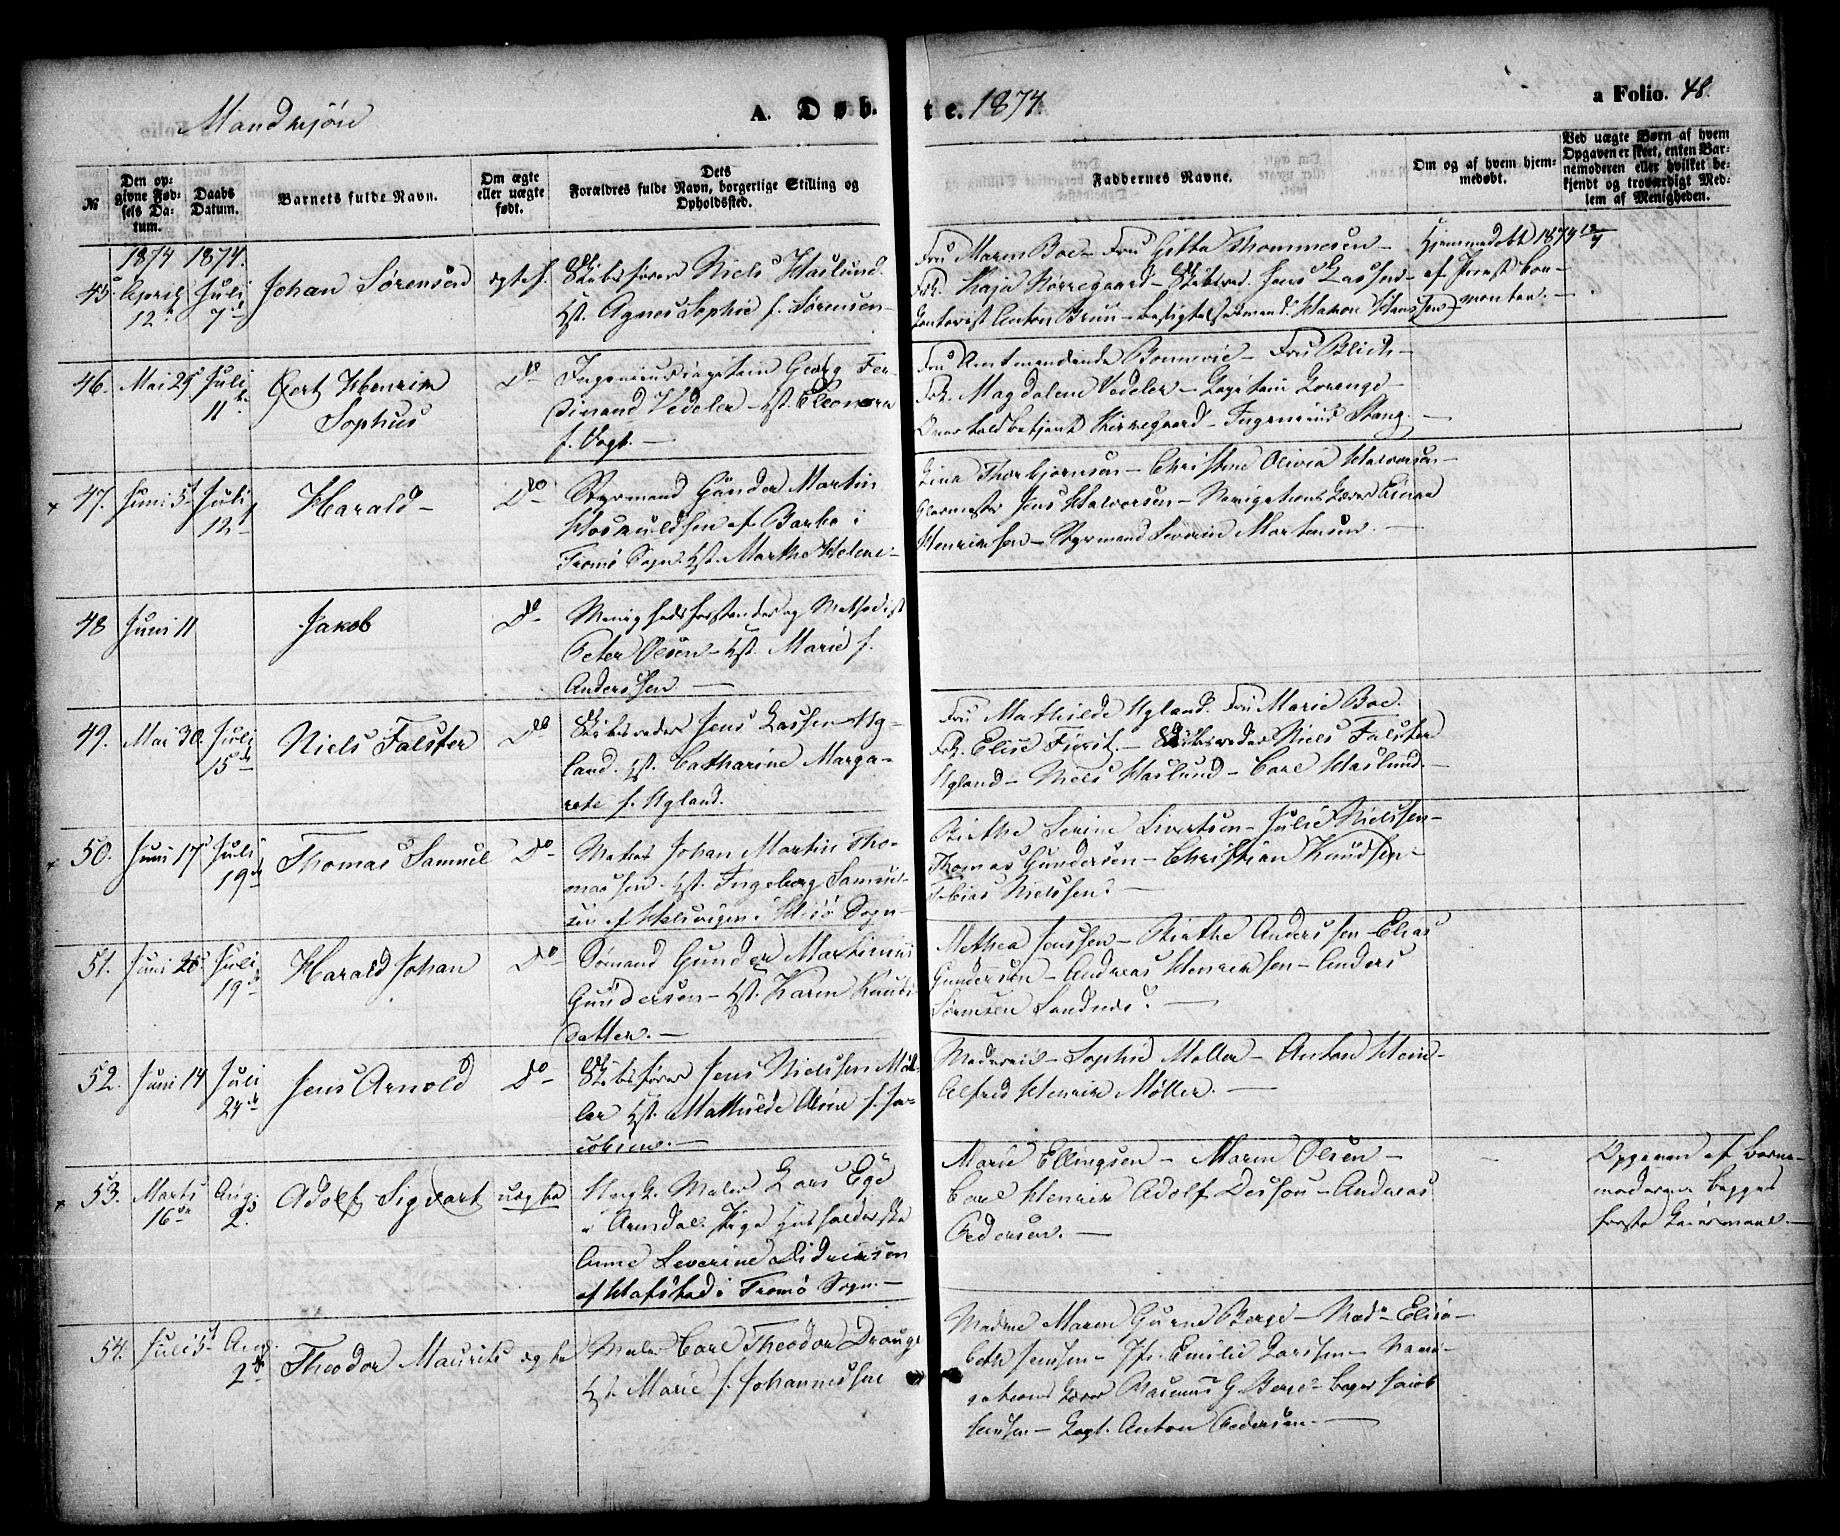 Mandkjön
A. Døbte. 1874
a Folio. 48.
№
Den op-
givne Fød-
sels Da-
tum.
Daabs
Datum.
Barnets fulde Navn.
Om ægte
eller uægte
født.
Dets
Forældres fulde Navn, borgerlige Stilling og
Opholdssted.
Faddernes Navne.
Om og af hvem hjem-
medøbt.
Ved uægte Børn af hvem
Opgaven er skeet, enten Bar-
nemoderen eller hvilket be-
kjendt og troværdigt Med-
lem af Menigheden.
1874 1874.
45. April 12te Juli 7de Johan Sørensen ægtef. Skibsfører Niels Haslund.
Hst. Agnes Sophie f. Sørensen
Fru Maren Boe – Fru Gitta Thommesen –
Frk. Kaja Nørregaard – Skibsred. Jens Lassen –
Contorist Anton Bruu – Besigtelsesmand Hakon Hanssen
Hjemmedøbt 1874 12/4
af Præst Bon-
46. Mai 25 Juli 11te Gert Henrik
Sophus
Do
Ingenieurcapitain Georg Fer-
dinand Vedeler – Hst. Eleonora
f. Vogt. –
Fru Amtmandinde Bonnevie – Fru Blich –
Frk. Magdalene Vedeler – Capitain Lorange –
Kirkegaard – Ingenieur Stang. –
× 47. Juni 5te Juli 12te Harald – Do
Styrmand Gunder Martin
af Barbo i
Tromø Sogn. Hst. Marthe Helene –
Lina Thorbjørnsen – Christine Olivia Halvorsen –
Glarmester Jens Halvorsen – Navigations Lærer Einar
Henriksen – Styrmand Severin Martensen. –
48 Juni 11 Jakob Do
Menighedsforstander og Methodist
Peter Olsen – Hst. Marie f.
Anderssen –
49. Mai 30. Juli 15de Niels Falster Do
Skibsreder Jens Lassen Ug-
land. Hst. Catharine Marga-
rete f. Ugland.
Fru Mathilde Ugland. Fru Marie Boe.
Frk. Elise Fürst. – Skibsreder Niels Falster
Ugland – Niels Haslund – Carl Haslund. –
× 50. Juni 17de Juli 19de Thomas Samuel Do
Matros Johan Martin Tho-
massen. Hst. Ingeborg Samuel-
sen af Helsvigen i Hisø Sogn –
Birthe Serine Sivertsen – Julie Nielssen –
Thomas Gundersen – Christian Knudsen –
Tobias Nielssen. –
51. Juni 26 Juli 19de Harald Johan Do
Sømand Gunder Martinius
Gundersen – Hst. Karen Knuts-
datter. –
Methea Jenssen – Birthe Anderssen – Elias
Gundersen – Andreas Henriksen – Anders
Sørensen Sandnes. –
52. Juni 14 Juli 24de Jens Arnold Do
Skibsfører Jens Nielssen Møl-
ler Hst. Mathilde Aline f. Ja-
cobsen. –
Moderen – Sophie Møller – Anton Hein –
Alfred Henrik Møller. –
× 53. Marts 16de Aug. 2. Adolf Sigvart uægte
Ungk. Maler Lars Ege
i Arendal. Pige Husholderske
Anne Severine Didriksen
af Hafstad i Tromø Sogn. –
Marie Ellingsen – Maren Olsen –
Carl Henrik Adolf Dessou – Andreas
Pedersen. –
Opgaven af Barne-
moderen begges
første Leiermaal. –
54. Juli 5te Aug. 2de Theodor Maurits ægte
Maler Carl Theodor Drange
Hst. Marie f. Johannessen
Madme Maren Gurine Berge – Made Elisa-
beth Jenssen – Jfr. Emilie Larssen – Navi-
gations Lærer Rasmus G. Berge – Bager Jacob
Jenssen – Capt. Anton Pedersen. –